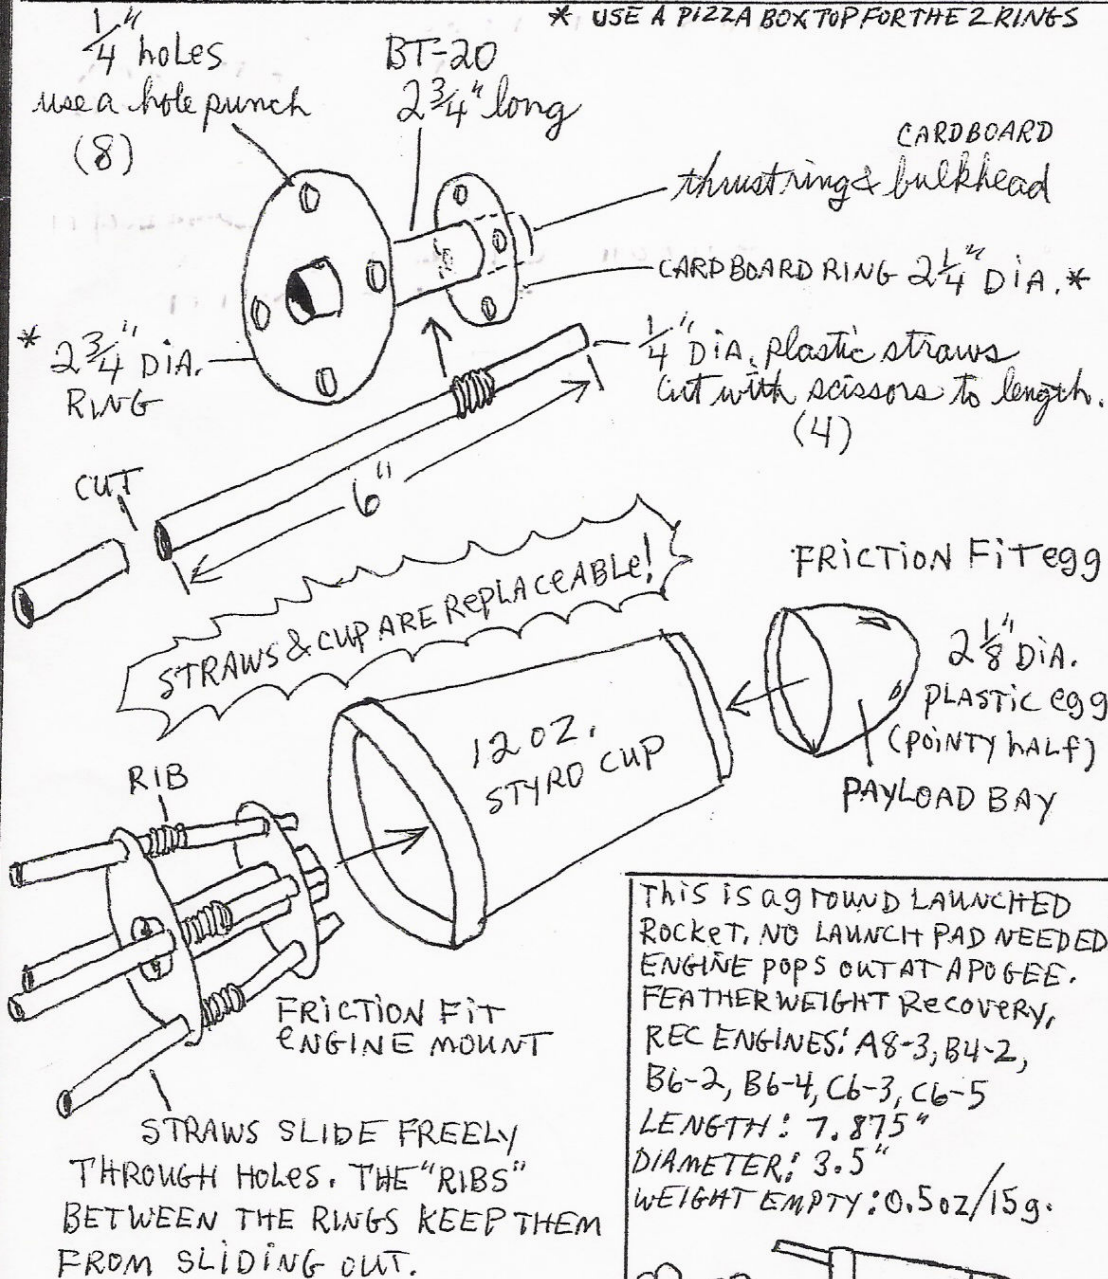 * USE A PIZZA BOX TOP FOR THE 2 RINGS
1/4" holes
use a hole punch
(8)
BT-20
2 3/4" long
CARDBOARD
thrust ring & bulkhead
CARDBOARD RING 2 1/4" DiA. *
* 2 3/4" DiA.
RiNG
1/4" DiA. plastic straws
cut with scissors to length.
(4)
CUT
6"
STRAWS & CUP ARE REPLACEABLE!
FRiCTiON FiT egg
2 1/8" DiA.
PLASTiC egg
(POiNTY hALf)
PAYLOAD BAY
12 OZ.
STYRO CUP
RiB
FRiCTiON FiT
eNGiNE MOUNT
STRAWS SLiDE FREELY
THROUGH HOLes. THE "RiBS"
BETWEEN THE RiNGS KEEP THEM
FROM SLiDiNG OUT.
This is a gROUND LAUNCHED
ROCKeT. NO LAUNCH PAD NEEDED
ENGiNE pOpS OUT AT APOGEE.
FEATHERWEiGHT Recovery,
REC ENGiNES: A8-3, B4-2,
B6-2, B6-4, C6-3, C6-5
LENGTH: 7.875"
DiAMETER: 3.5"
WEiGHT EMPTY: 0.5oz/15g.